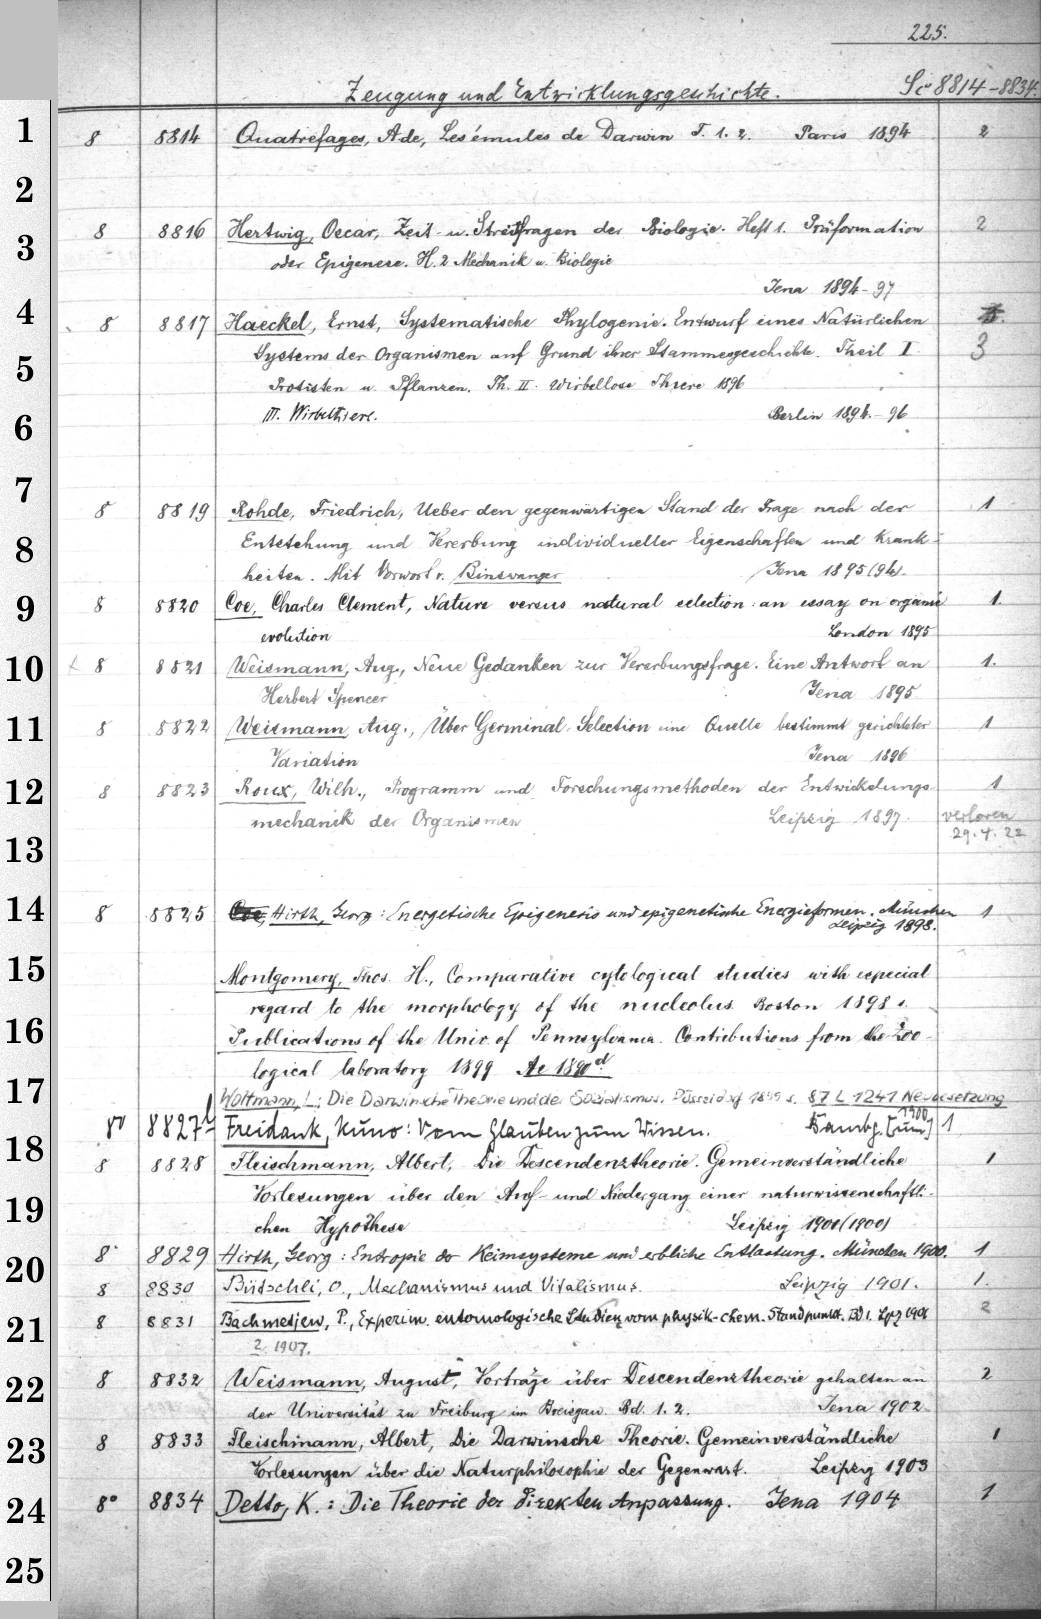 225.
Zeugung und Entwicklungsgeschichte. Sc 8814-8834.
1 8 8814 Quatrefages, A de, Les émules de Darwin T. 1. 2. Paris 1894 2
2
8 8816 Hertwig, Oscar, Zeit- u. Streitfragen der Biologie. Heft 1. Präformation 2
3 oder Epigenese. H. 2 Mechanik u. Biologie
Jena 1894-97
4 8 8817 Haeckel, Ernst, Systematische Phylogenie. Entwurf eines Natürlichen
5 Systems der Organismen auf Grund ihrer Stammesgeschichte. Theil I. 3
Protisten u. Pflanzen. Th. II. Wirbellose Thiere 1896
6 III. Wirbelthiere. Berlin 1894.-96
7 8 8819 Rohde, Friedrich, Ueber den gegenwärtigen Stand der Frage nach der 1
8 Entstehung und Vererbung individueller Eigenschaften und Krank-
heiten. Mit Vorwort v. Binswanger Jena 1895 (94).
9 8 8820 Coe, Charles Clement, Nature versus natural selection: an essay on organic 1.
evolution London 1895
10 8 8821 Weismann, Aug., Neue Gedanken zur Vererbungsfrage. Eine Antwort an 1.
Herbert Spencer Jena 1895
11 8 8822 Weismann, Aug., Über Germinal-Selection eine Quelle bestimmt gerichteter 1
Variation Jena 1896
12 8 8823 Roux, Wilh., Programm und Forschungsmethoden der Entwickelungs- 1
mechanik der Organismen Leipzig 1897. verloren
13 29.4.22
14 8 8825 Coe, Hirth, Georg: Energetische Epigenesis und epigenetische Energieformen. München 1
Leipzig 1898.
15 Montgomery, Thos. H., Comparative cytological studies with especial
regard to the morphology of the nucleolus. Boston 1898 s.
16 Publications of the Univ. of Pennsylvania. Contributions from the Zoo-
logical laboratory 1899 Ac 1890d
17 Woltmann, L.: Die Darwinsche Theorie und der Sozialismus. Düsseldorf 1899 s. 87 L 1241 Neubesetzung
8° 8827 Freidank, Kuno: Vom Glauben zum Wissen. Bambg. [um 1900] 1
18 8 8828 Fleischmann, Albert, Die Descendenztheorie. Gemeinverständliche 1
19 Vorlesungen über den Auf- und Niedergang einer naturwissenschaftli-
chen Hypothese Leipzig 1901 (1900)
20 8° 8829 Hirth, Georg: Entropie der Keimsysteme und erbliche Entlastung. München 1900. 1
8 8830 Bütschli, O., Mechanismus und Vitalismus. Leipzig 1901. 1.
21 8 8831 Bachmetjew, P., Experim. entomologische Studien vom physik-chem. Standpunkt. Bd 1. Lpz 1901 2
2 1907.
22 8 8832 Weismann, August, Vorträge über Descendenztheorie gehalten an 2
der Universität zu Freiburg im Breisgau. Bd. 1. 2. Jena 1902.
23 8 8833 Fleischmann, Albert, Die Darwinsche Theorie. Gemeinverständliche 1
Vorlesungen über die Naturphilosophie der Gegenwart. Leipzig 1903
24 8° 8834 Detto, K.: Die Theorie der direkten Anpassung. Jena 1904 1
25